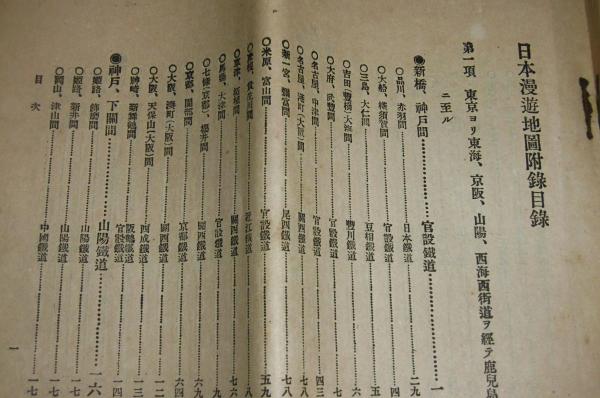 日本漫遊地圖附錄目錄
第一項 東京ヨリ東海、京阪、山陽、西海西街道ヲ經テ鹿兒島
ニ至ル
◉新橋、神戸間 官設鐵道 一
○品川、赤羽間 日本鐵道 二九
○大船、橫須賀間 官設鐵道
○三島、大仁間 豆相鐵道
○吉田(豊橋)大海間 豐川鐵道
○大府、武豊間 官設鐵道
○名古屋、中津間 官設鐵道 四三
○名古屋、湊町(大阪)間 關西鐵道
○新一宮、彌富間 尾西鐵道 七八
○米原、富山間 官設鐵道 五九
間 近江鐵道
○草津、柘植間 關西鐵道 七六
○馬場、大津間 官設鐵道
○七條(京都)、櫻井間 關西鐵道
○京都、園部間 京都鐵道
○大阪、湊町(大阪)間 關西鐵道 六四
○大阪、天保山(大阪)間 西成鐵道
○神崎、新舞鶴間 阪鶴鐵道
官設鐵道
◉神戸、下關間 山陽鐵道 一六
○姫路、飾磨間 山陽鐵道
○姫路、新井間 山陽鐵道
○岡山、津山間 中國鐵道 一七
目次 一